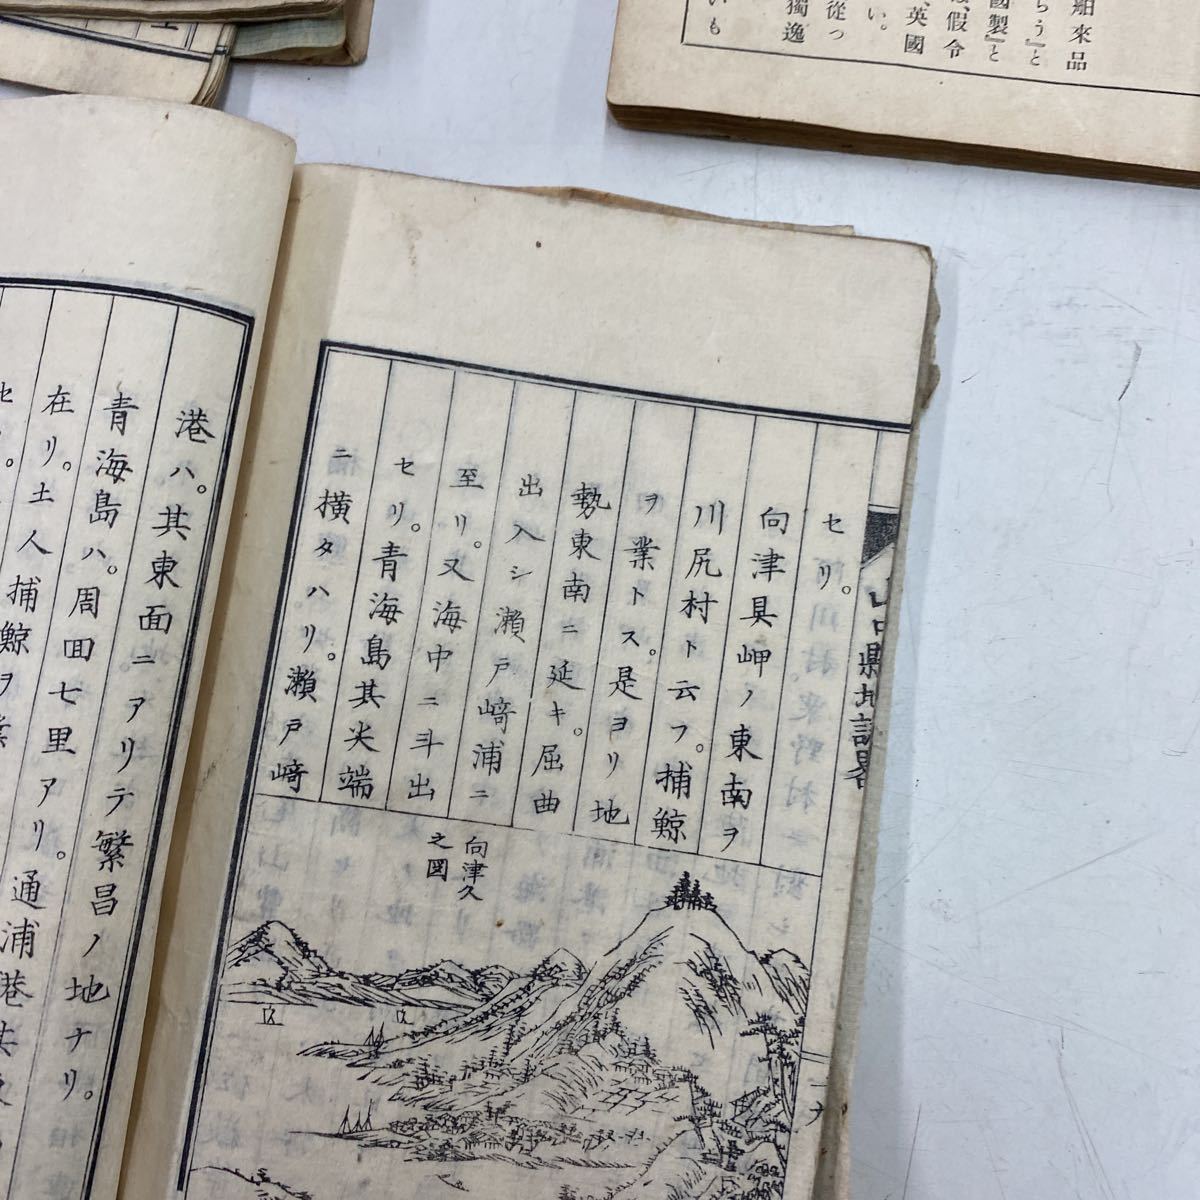 セリ。
向津具岬ノ東南ヲ
川尻村ト云フ。捕鯨
ヲ業トス。是ヨリ地
勢東南ニ延キ。屈曲
出入シ瀬戸﨑浦ニ
至リ。又海中ニ斗出
セリ。青海島其尖端
ニ横タハリ。瀬戸﨑
向津久
之図
港ハ。其東面ニアリテ繁昌ノ地ナリ。
青海島ハ。周回七里アリ。通浦港其東
在リ。土人捕鯨ヲ業
山口県地誌畧
舶來品
ちう』と
國製』と
假令
英國
い。
從つ
獨逸
いも